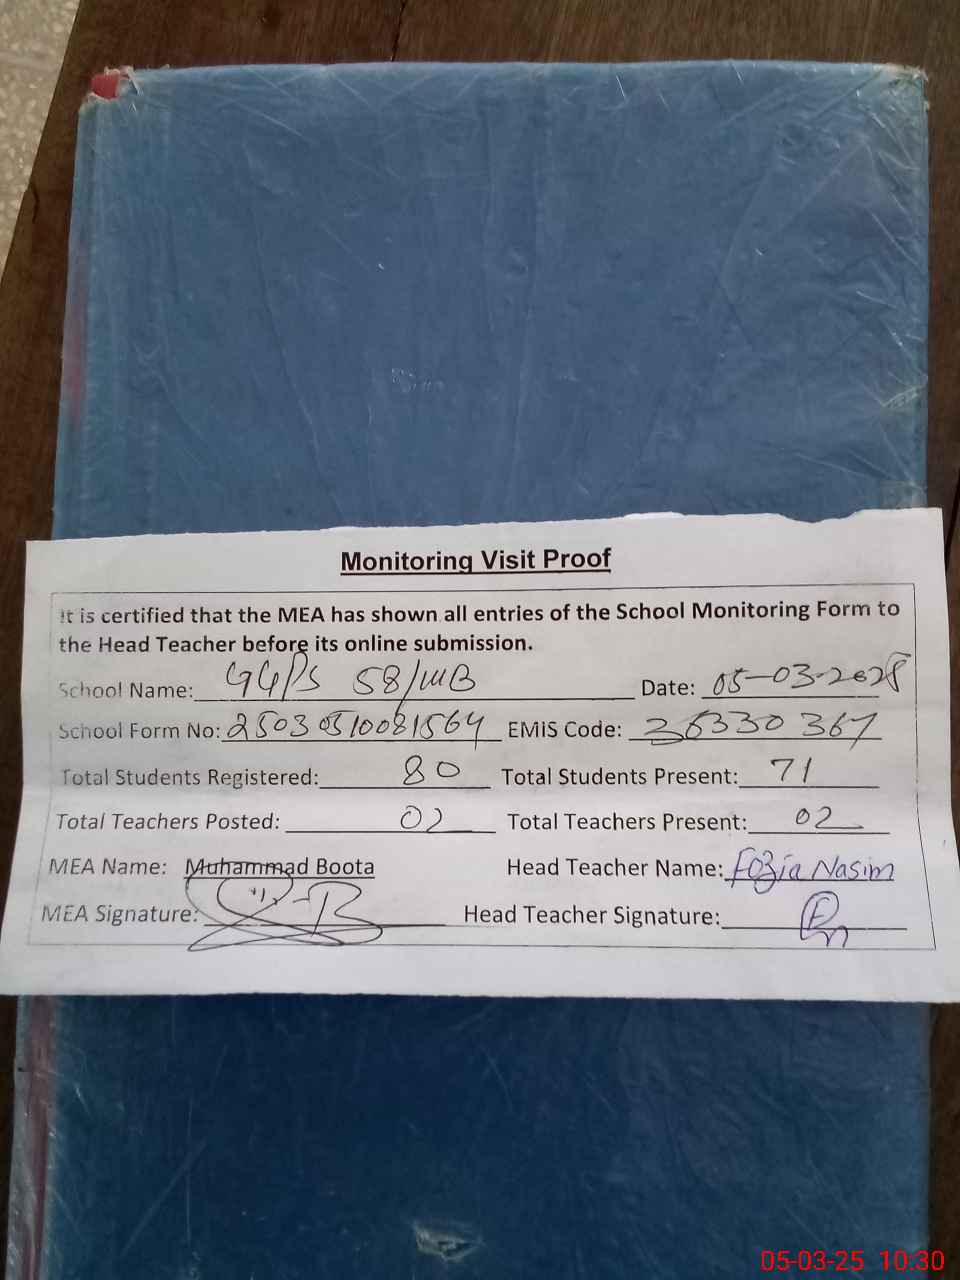 Monitoring Visit Proof
It is certified that the MEA has shown all entries of the School Monitoring Form to
the Head Teacher before its online submission.
School Name: GGPS 58/MB Date: 05-03-2025
School Form No: 25030510081564 EMIS Code: 36330367
Total Students Registered: 80 Total Students Present: 71
Total Teachers Posted: 02 Total Teachers Present: 02
MEA Name: Muhammad Boota Head Teacher Name: Fozia Nasim
MEA Signature: Head Teacher Signature:
05-03-25 10:30